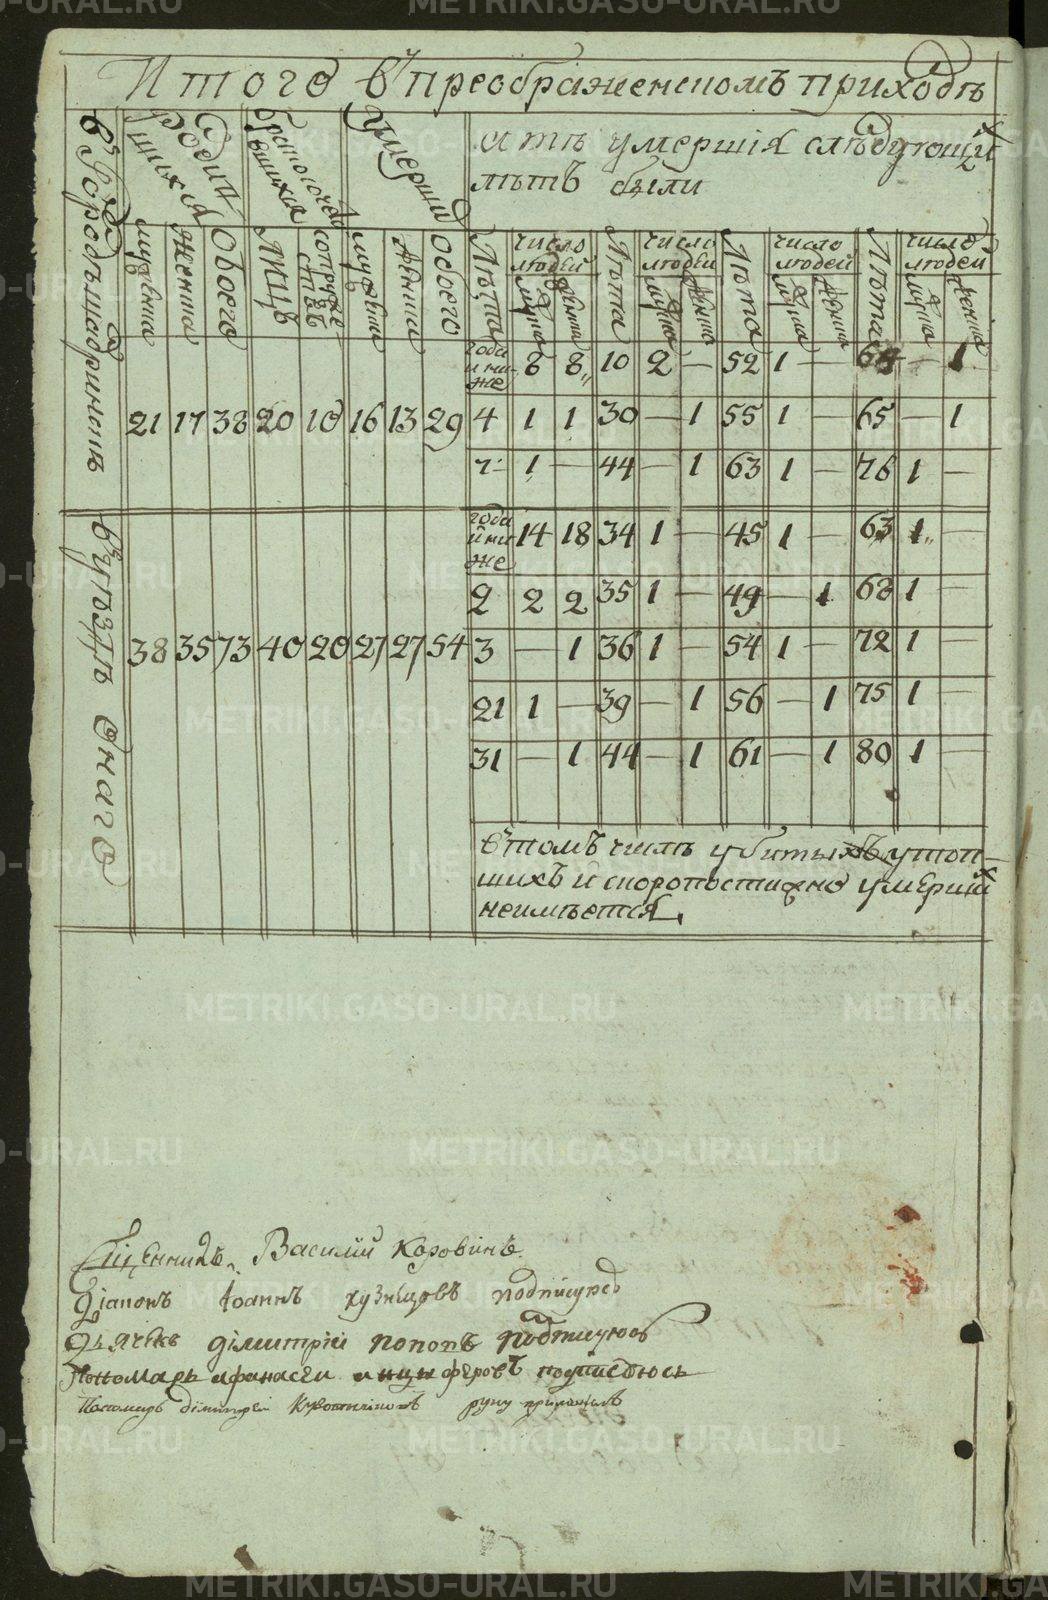 Итого в преображенскомъ приходѣ
въ Городѣ шадринскѣ
родившихся
браком сочетавшихся
Умерши
а тѣ умершiя слѣдующих
лѣтъ были
мужеска
женска
обоего
лицъ
супружествъ
мужеска
женска
обоего
Лѣта
число людей
мужска
женска
Лѣта
число людей
мужска
женска
Лѣта
число людей
мужска
женска
Лѣта
число людей
мужска
женска
21 17 38 20 10 16 13 29
года и ниже 8 8 10 2 — 52 1 — 64 — 1
4 1 1 30 — 1 55 1 — 65 — 1
7 1 — 44 — 1 63 1 — 76 1 —
въ уѣздѣ Онаго
38 35 73 40 20 27 27 54
года и ниже 14 18 34 1 — 45 1 — 63 1 —
2 2 2 35 1 — 49 — 1 68 1 —
3 — 1 36 1 — 54 1 — 72 1 —
21 1 — 39 — 1 56 — 1 75 1 —
31 — 1 44 — 1 61 — 1 80 1 —
в томъ числѣ убитыхъ утоп-
шихъ и скоропостижно умерших
неимѣется
Сщенникъ Василiй Коровинъ
Дiаконъ Iоаннъ кузнецовъ подписуюсь
Дьячекъ дiмитрiй попопъ подписуюсь
Пономарь афанасеи анцыферовъ подписуюсь
Пономарь димитреи руку приложилъ
METRIKI.GASO-URAL.RU